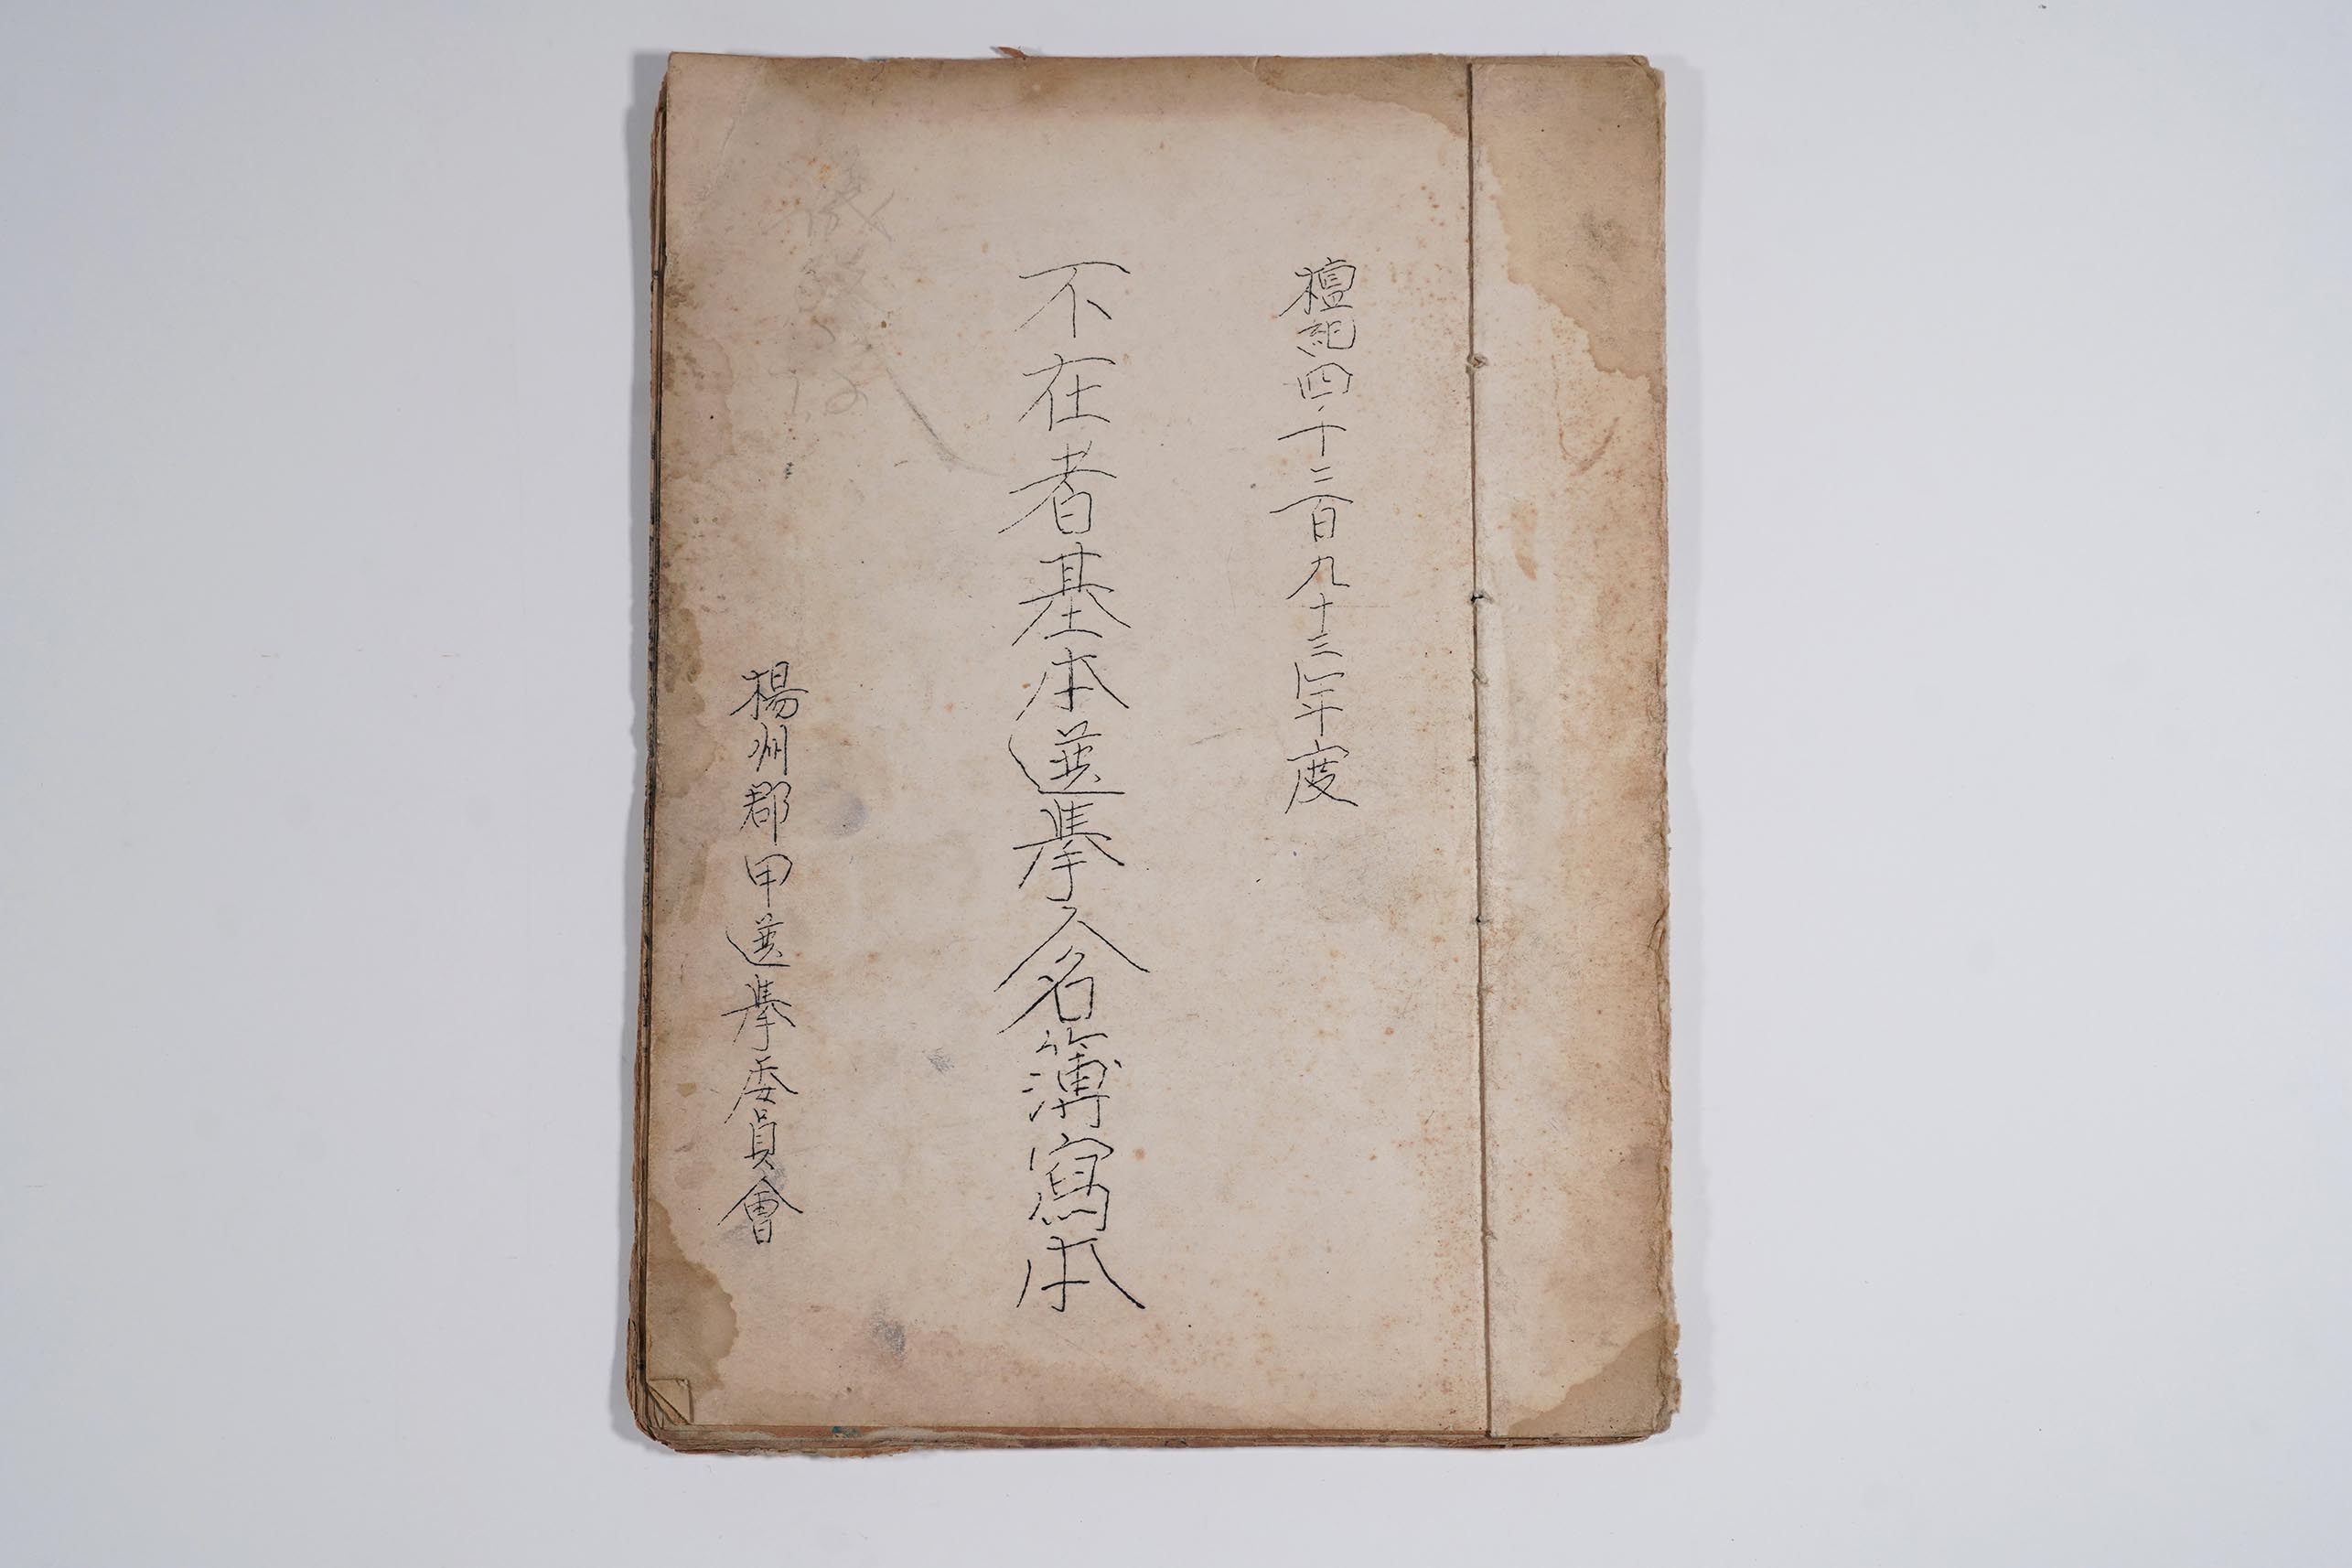 檀紀四千二百九十三年度
不在者基本選擧人名簿寫本
楊州郡甲選擧委員會